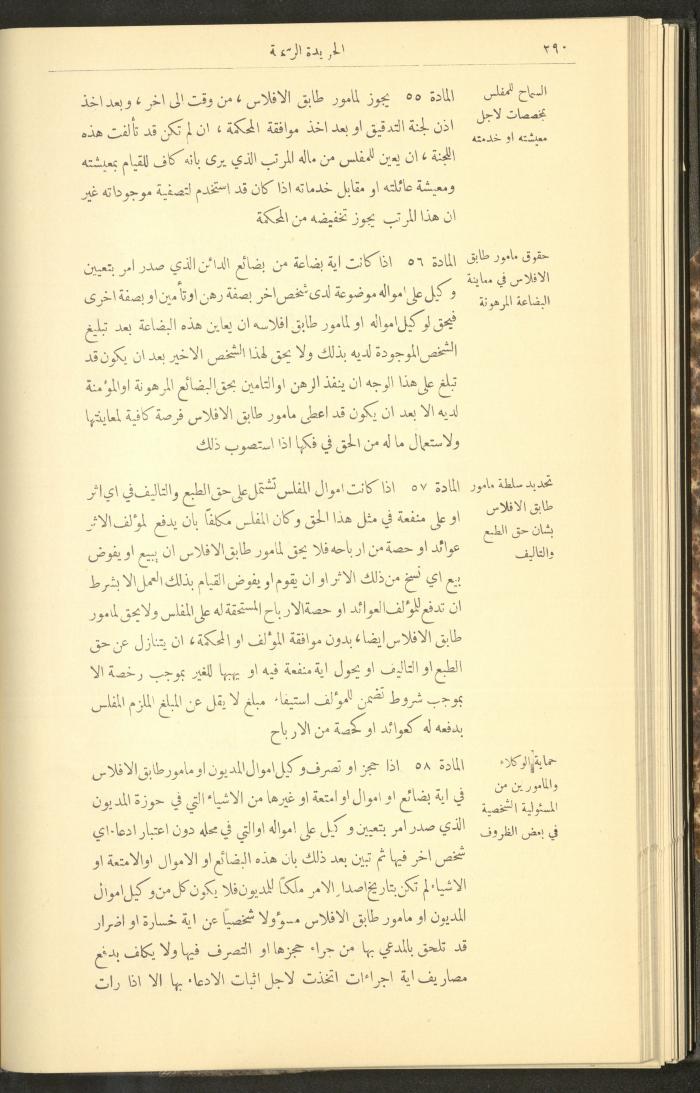 ٢٩٠
الجريدة الرسمية
السماح للمفلس
بمخصصات لاجل
معيشته او خدمته
المادة ٥٥ يجوز لمامور طابق الافلاس ، من وقت الى اخر ، وبعد اخذ
اذن لجنة التدقيق او بعد اخذ موافقة المحكمة ، ان لم تكن قد تألفت هذه
اللجنة ، ان يعين للمفلس من ماله المرتب الذي يرى بانه كاف للقيام بمعيشته
ومعيشة عائلته او مقابل خدماته اذا كان قد استخدم لتصفية موجوداته غير
ان هذا المرتب يجوز تخفيضه من المحكمة
حقوق مامور طابق
الافلاس في معاينة
البضاعة المرهونة
المادة ٥٦ اذا كانت اية بضاعة من بضائع الدائن الذي صدر امر بتعيين
وكيل على امواله موضوعة لدى شخص اخر بصفة رهن او تأمين او بصفة اخرى
فيحق لوكيل امواله او لمامور طابق افلاسه ان يعاين هذه البضاعة بعد تبليغ
الشخص الموجودة لديه بذلك ولا يحق لهذا الشخص الاخير بعد ان يكون قد
تبلغ على هذا الوجه ان ينفذ الرهن او التامين بحق البضائع المرهونة او المؤمنة
لديه الا بعد ان يكون قد اعطى مامور طابق الافلاس فرصة كافية لمعاينتها
ولاستعمال ما له من الحق في فكها اذا استصوب ذلك
تحديد سلطة مامور
طابق الافلاس
بشان حق الطبع
والتاليف
المادة ٥٧ اذا كانت اموال المفلس تشتمل على حق الطبع والتاليف في اي اثر
او على منفعة في مثل هذا الحق وكان المفلس مكلفاً بان يدفع لمؤلف الاثر
عوائد او حصة من ارباحه فلا يحق لمامور طابق الافلاس ان يبيع او يفوض
بيع اي نسخ من ذلك الاثر او ان يقوم او يفوض القيام بذلك العمل الا بشرط
ان تدفع للمؤلف العوائد او حصة الارباح المستحقة له على المفلس ولا يحق لمامور
طابق الافلاس ايضا، بدون موافقة المؤلف او المحكمة ، ان يتنازل عن حق
الطبع او التاليف او يحول اية منفعة فيه او يهبها للغير بموجب رخصة الا
بموجب شروط تضمن للمؤلف استيفاء مبلغ لا يقل عن المبلغ الملزم المفلس
بدفعه له كعوائد او كحصة من الارباح
حماية الوكلاء
والمامورين من
المسئولية الشخصية
في بعض الظروف
المادة ٥٨ اذا حجز او تصرف وكيل اموال المديون او مامور طابق الافلاس
في اية بضائع او اموال او امتعة او غيرها من الاشياء التي في حوزة المديون
الذي صدر امر بتعيين وكيل على امواله او التي في محله دون اعتبار ادعاء اي
شخص اخر فيها ثم تبين بعد ذلك بان هذه البضائع او الاموال او الامتعة او
الاشياء لم تكن بتاريخ اصدار الامر ملكاً للمديون فلا يكون كل من وكيل اموال
المديون او مامور طابق الافلاس مسؤولا شخصياً عن اية خسارة او اضرار
قد تلحق بالمدعي بها من جراء حجزها او التصرف فيها ولا يكلف بدفع
مصاريف اية اجراءات اتخذت لاجل اثبات الادعاء بها الا اذا رات